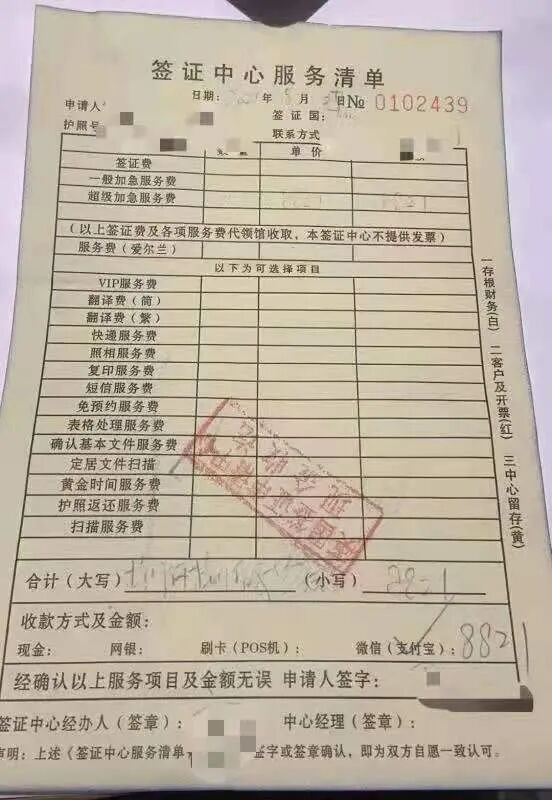 签证中心服务清单
日期： 年8月 日 №0102439
申请人 签证国：
护照号 联系方式
单价
签证费
一般加急服务费
超级加急服务费
（以上签证费及各项服务费代领馆收取，本签证中心不提供发票）
服务费（爱尔兰）
以下为可选择项目
VIP服务费
翻译费（简）
翻译费（繁）
快递服务费
照相服务费
复印服务费
短信服务费
免预约服务费
表格处理服务费
确认基本文件服务费
定居文件扫描
黄金时间服务费
护照返还服务费
扫描服务费
合计（大写） （小写）8821
收款方式及金额：
现金： 网银： 刷卡（POS机）： 微信（支付宝）：8821
经确认以上服务项目及金额无误 申请人签字：
签证中心经办人（签章）： 中心经理（签章）：
声明：上述《签证中心服务清单 签字或签章确认，即为双方自愿一致认可。
一存根财务（白） 二客户及开票（红） 三中心留存（黄）
现金收讫